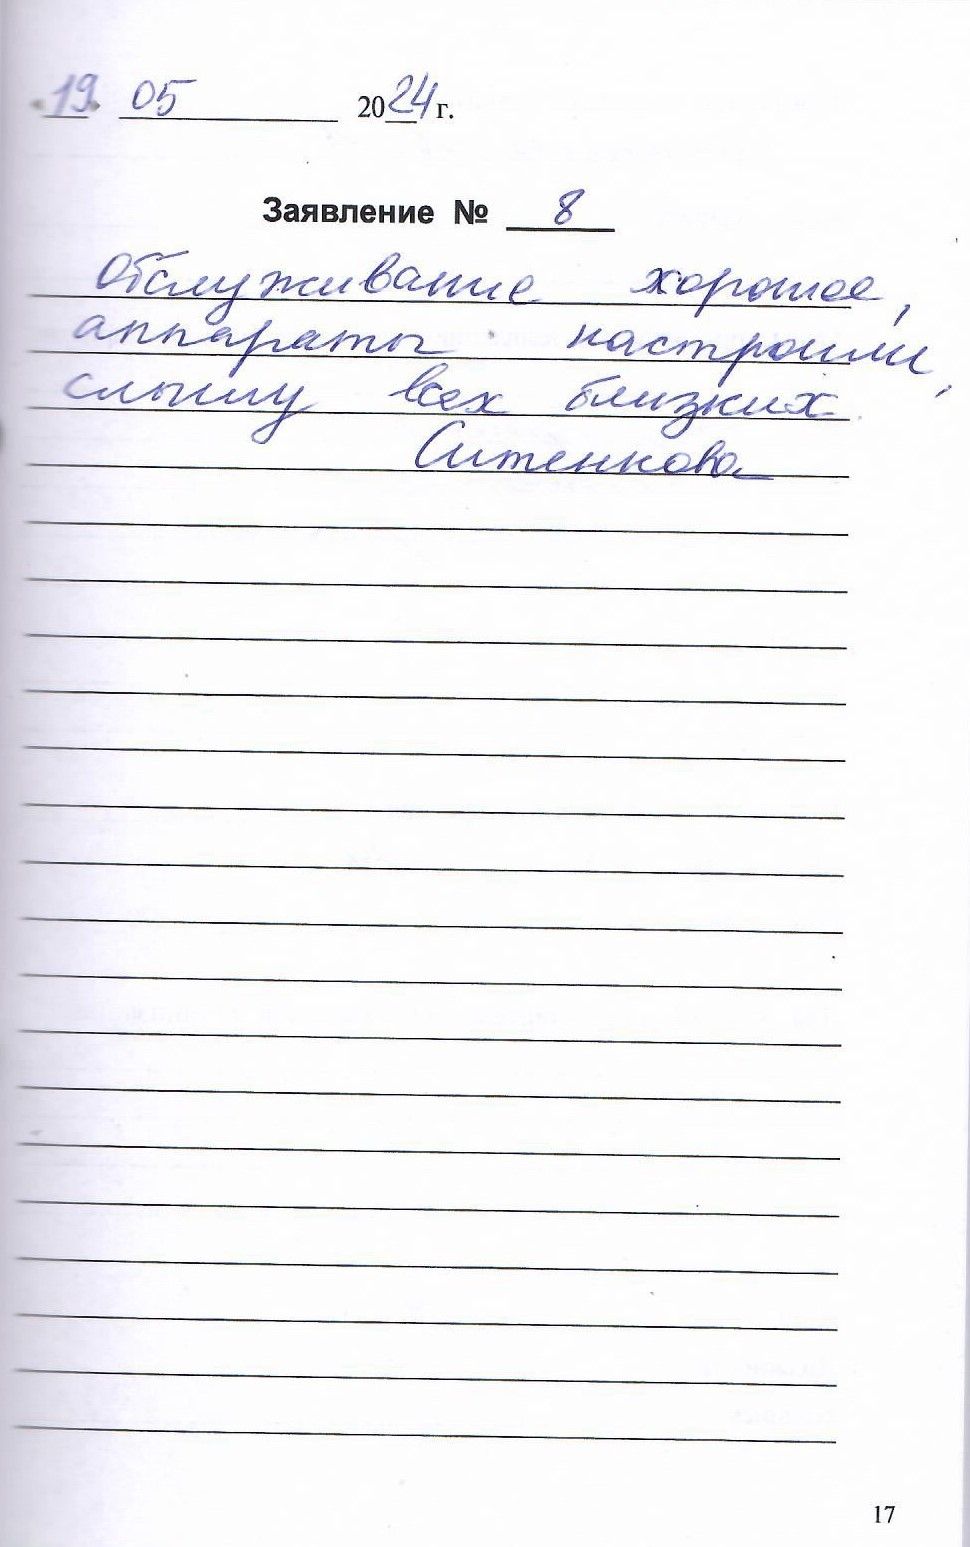 «19» 05 2024 г.
Заявление № 8
Обслуживание хорошее,
аппараты настроили,
слышу всех близких.
Ситенкова
17